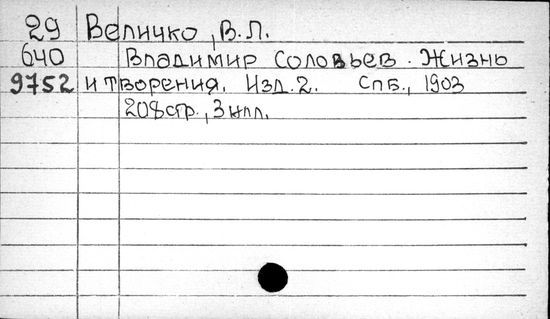 29 Величко, В.Л.
640 Владимир Соловьев. Жизнь
9752 и творения. Изд.2. Спб., 1903
208стр., 3 илл.